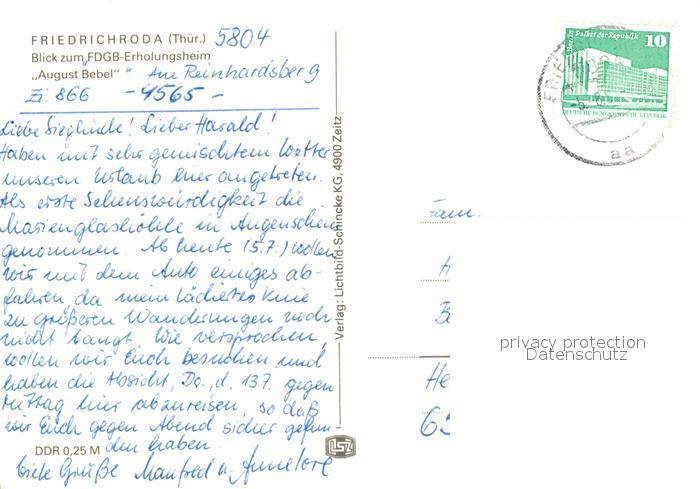 FRIEDRICHRODA (Thür.) 5804
Blick zum FDGB-Erholungsheim
„August Bebel" Am Reinhardsberg
Zi 866 - 4565 -
Liebe Sieglinde! Lieber Harald!
Haben mit sehr gemischtem Wetter
unseren Urlaub hier angetreten.
Als erste Sehenswürdigkeit die
Marienglashöhle in Augenschein
genommen. Ab heute (5.7.) wollen
wir mit dem Auto einiges ab-
fahren, da mein lädiertes Knie
zu größeren Wanderungen noch
nicht taugt. Wie versprochen,
wollen wir Euch besuchen und
haben die Absicht, Do., d. 13.7. gegen
Mittag hier abzureisen, so daß
wir Euch gegen Abend sicher gefun-
den haben.
DDR 0,25 M
Viele Grüße Manfred u. Annelore
Verlag: Lichtbild-Schincke KG, 4900 Zeitz
LSZ
Berlin Palast der Republik
10
DEUTSCHE DEMOKRATISCHE REPUBLIK
aa
Fam.
H
B
He
65
privacy protection
Datenschutz